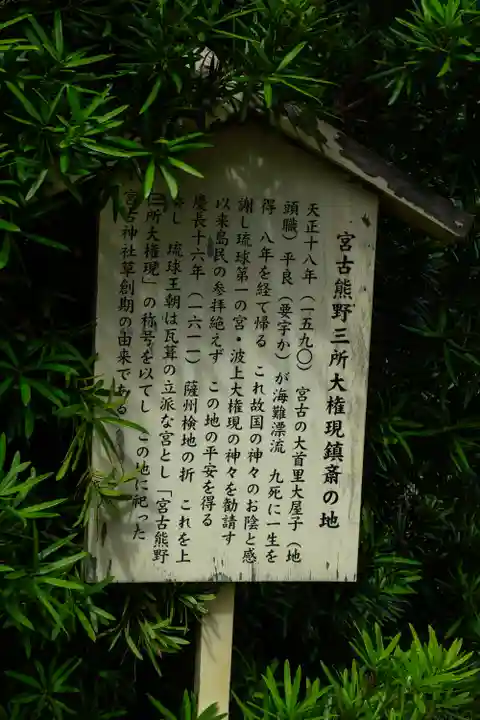 宮古熊野三所大権現鎮斎の地
天正十八年（一五九〇） 宮古の大首里大屋子（地
頭職）平良（要字か）が海難漂流 九死に一生を
得 八年を経て帰る これ故国の神々のお陰と感
謝し琉球第一の宮・波上大権現の神々を勧請す
以来島民の参拝絶えず この地の平安を得る
慶長十六年（一六一一） 薩州検地の折 これを上
し 琉球王朝は瓦葺の立派な宮とし「宮古熊野
三所大権現」の称号を以てし この地に祀った
宮古神社草創期の由来である